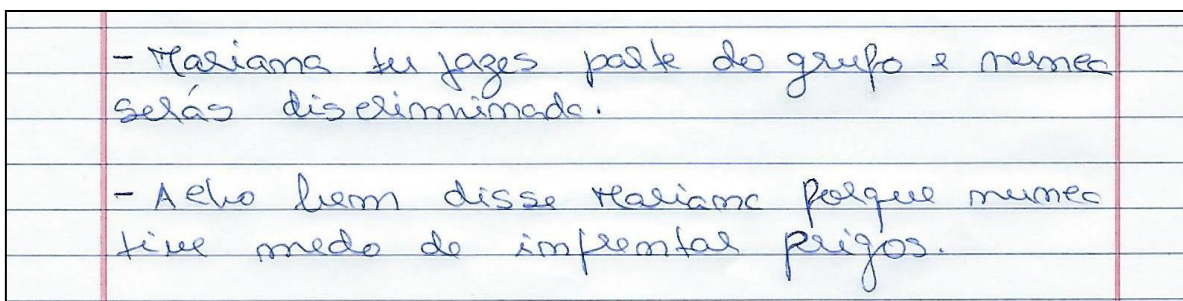 - Mariana tu fazes parte do grupo e nunca
serás discriminada.
- Acho bem disse Mariana porque nunca
tive medo de infrentar prigos.